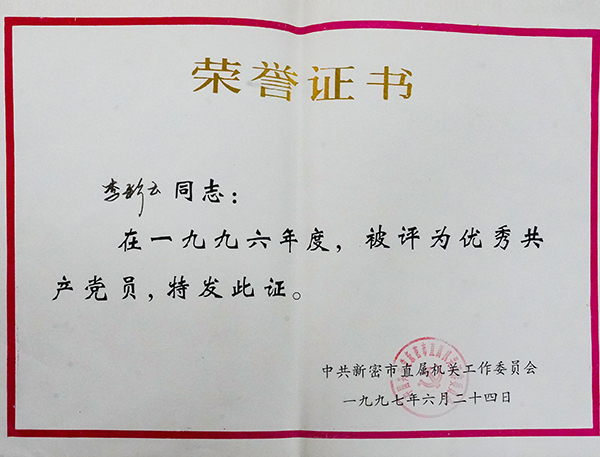 荣誉证书
李彩云同志：
在一九九六年度，被评为优秀共
产党员，特发此证。
中共新密市直属机关工作委员会
一九九七年六月二十四日